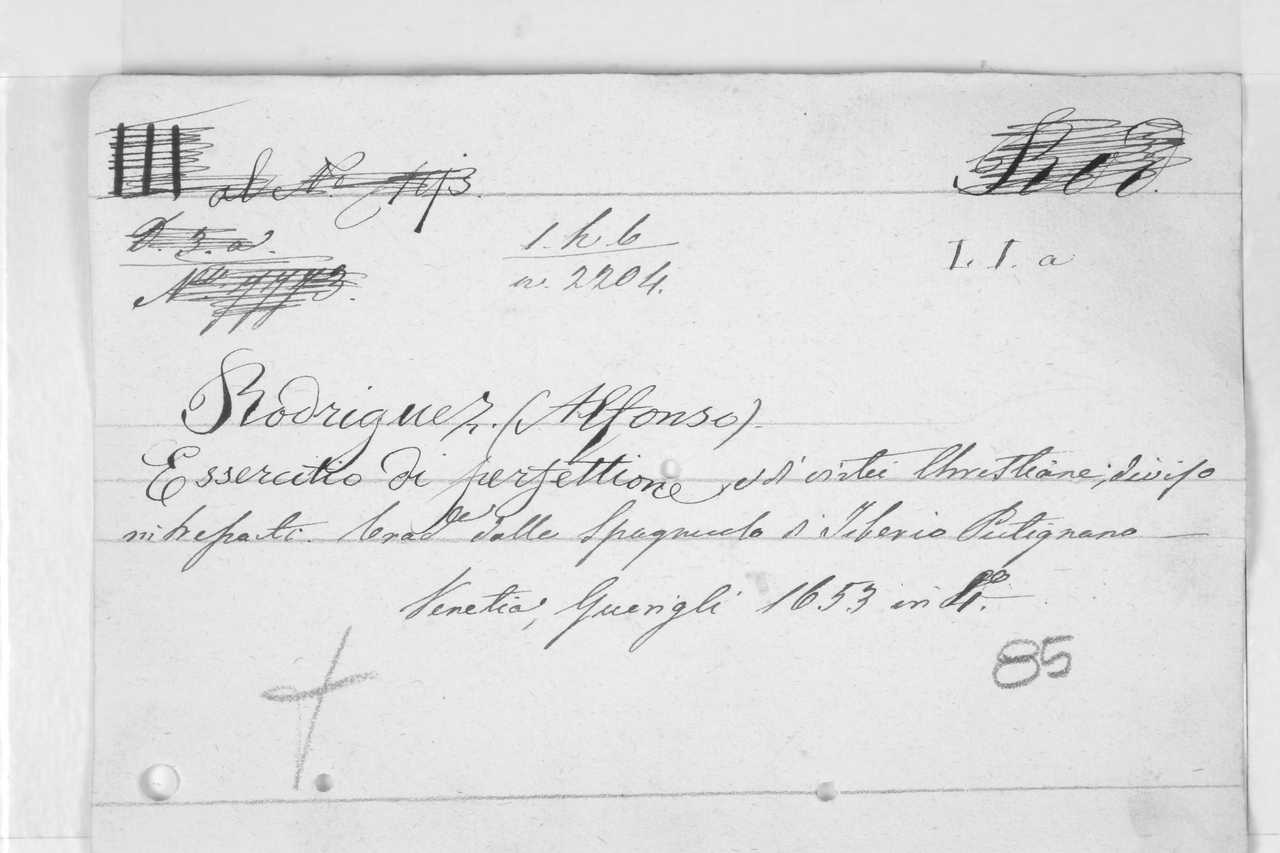 III al N.
D. 5. a. 1. h. 6 I. I. a
N. n. 2204.
Rodriguez. (Alfonso).
Essercitio di perfettione, e di virtù Christiane; diviso
in tre parti. Trad. dalla Spagnuola di Tiberio Putignano —
Venetia, Guerigli 1653 in 4.º
85